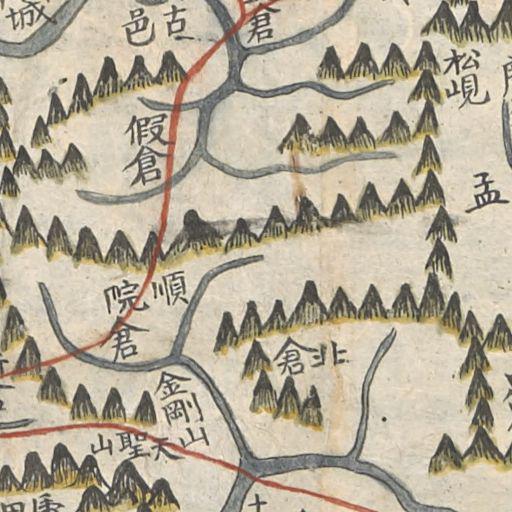 城
古邑
倉
松峴
假倉
孟
順院倉
北倉
金剛山
天聖山